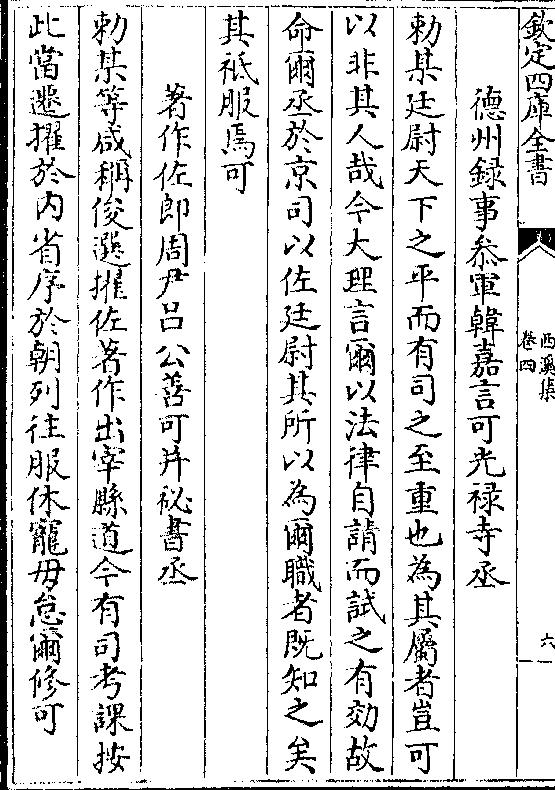 欽定四庫全書
西溪集
卷四
六
德州録事叅軍韓嘉言可光禄寺丞
勅某廷尉天下之平而有司之至重也為其屬者豈可
以非其人哉今大理言爾以法律自請而試之有効故
命爾丞於京司以佐廷尉其所以為爾職者既知之矣
其祗服焉可
著作佐郎周尹吕公善可并祕書丞
勅某等咸稱俊選擢佐著作出宰縣道今有司考課按
此當遷擢於内省序於朝列往服休寵毋怠爾修可